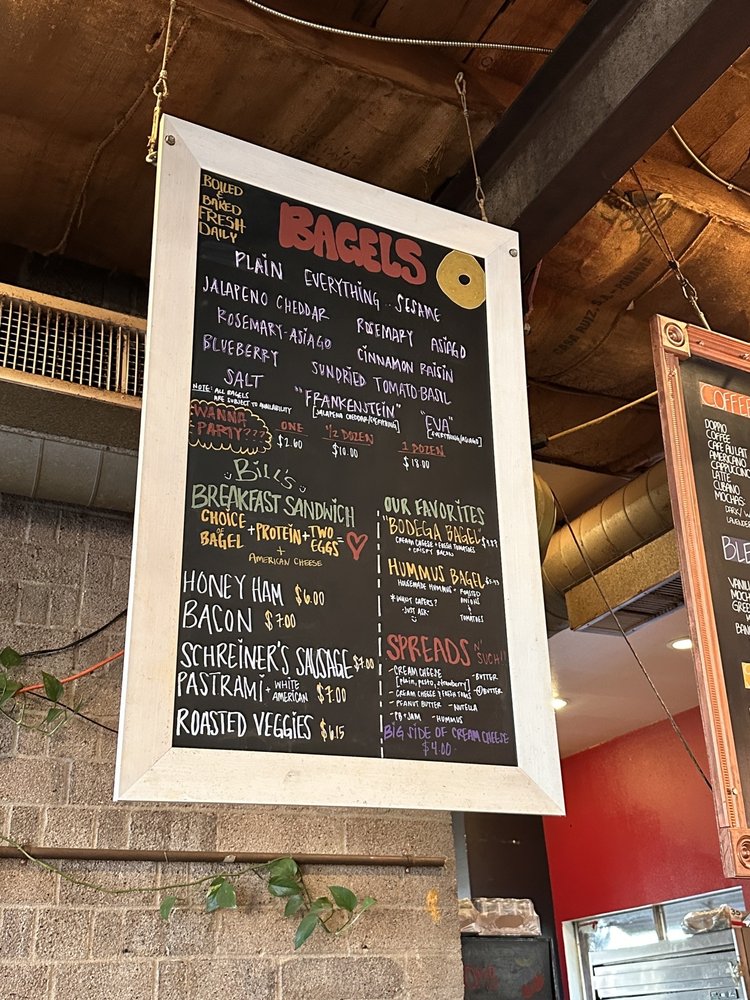 BOILED
&
BAKED
FRESH
DAILY
BAGELS
PLAIN EVERYTHING SESAME
JALAPENO CHEDDAR ROSEMARY ASIAGO
ROSEMARY-ASIAGO CINNAMON RAISIN
BLUEBERRY SUNDRIED TOMATO-BASIL
SALT "FRANKENSTEIN" "EVA"
[JALAPENO CHEDDAR/EVERYTHING] [EVERYTHING/ASIAGO]
NOTE: ALL BAGELS
ARE SUBJECT TO AVAILABILITY
WANNA
PARTY???
ONE 1/2 DOZEN 1 DOZEN
$2.60 $10.00 $18.00
Bill's
BREAKFAST SANDWICH
CHOICE OF BAGEL + PROTEIN + TWO EGGS =
+
AMERICAN CHEESE
HONEY HAM $6.00
BACON $7.00
SCHREINER'S SAUSAGE $7.00
PASTRAMI + WHITE AMERICAN $7.00
ROASTED VEGGIES $6.15
OUR FAVORITES
"BODEGA BAGEL"
CREAM CHEESE + FRESH TOMATOES
+ CRISPY BACON
HUMMUS BAGEL
HOUSEMADE HUMMUS + ROASTED
ONIONS
&
TOMATOES
*WANT CAPERS?
-JUST ASK-
SPREADS N' SUCH!!
-CREAM CHEESE -BUTTER
[plain, pesto, strawberry]
-CREAM CHEESE & FRESH TOMS
-BUTTER
-PEANUT BUTTER -NUTELLA
-PB+JAM -HUMMUS
BIG SIDE OF CREAM CHEESE
$4.00
COFFEE
DOPPIO
COFFEE
CAFE AU LAIT
AMERICANO
CAPPUCCINO
LATTE
CUBANO
MOCHAS
DARK/W
LAVENDER
BLE
VANIL
MOCH
GREE
BAN